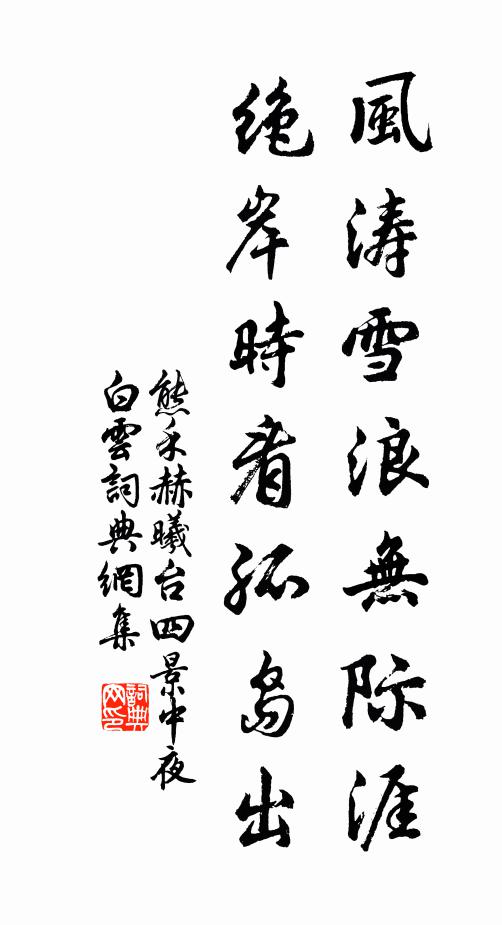 風涛雪浪無际涯
绝岸時看孤島出
熊禾赫曦台四景中夜
白雲詞典網集
詞典
网印